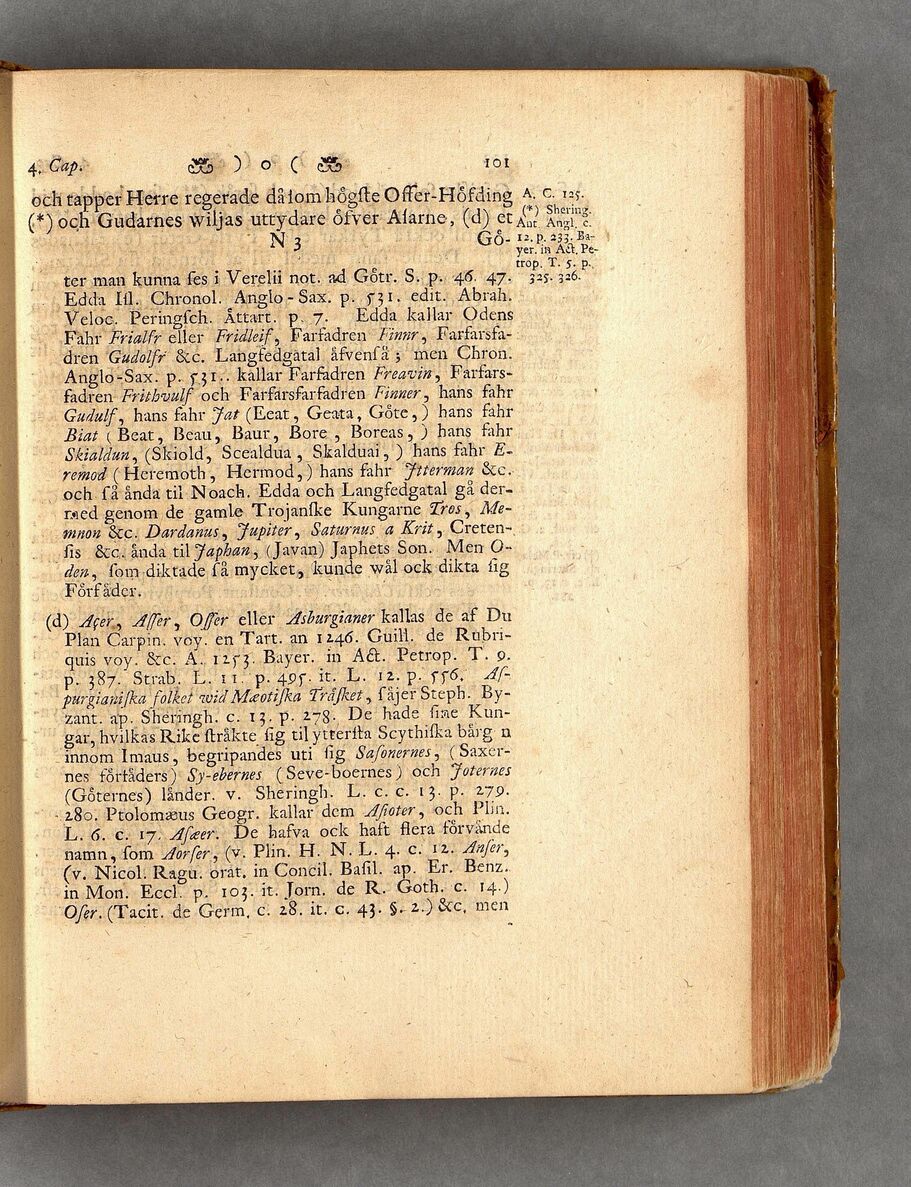 4. Cap. ) o ( 101
och tapper Herre regerade då ſom högſte Offer-Höfding
(*) och Gudarnes wiljas uttydare öfver Aſarne, (d) et
N 3 Gö-
A. C. 125.
(*) Shering.
Ant. Angl. c.
12. p. 233. Ba-
yer. in Act. Pe-
trop. T. 5. p.
325. 326.
ter man kunna ſes i Verelii not. ad Götr. S. p. 46. 47.
Edda Iſl. Chronol. Anglo-Sax. p. 531. edit. Abrah.
Veloc. Peringſch. Ättart. p. 7. Edda kallar Odens
Fahr Frialfr eller Fridleif, Farfadren Finnr, Farfarsfa-
dren Gudolfr &c. Langfedgatal äfvenſå; men Chron.
Anglo-Sax. p. 531.. kallar Farfadren Freavin, Farfars-
fadren Frithvulf och Farfarsfarfadren Finner, hans fahr
Gudulf, hans fahr Jat (Eeat, Geata, Göte,) hans fahr
Biat (Beat, Beau, Baur, Bore, Boreas,) hans fahr
Skialdun, (Skiold, Scealdua, Skalduai,) hans fahr E-
remod (Heremoth, Hermod,) hans fahr Jtterman &c.
och ſå ända til Noach. Edda och Langfedgatal gå der-
med genom de gamle Trojanſke Kungarne Tros, Me-
mnon &c. Dardanus, Jupiter, Saturnus a Krit, Creten-
ſis &c. ända til Japhan, (Javan) Japhets Son. Men O-
den, ſom diktade ſå mycket, kunde wäl ock dikta ſig
Förfäder.
(d) Açer, Aſſer, Oſſer eller Asburgianer kallas de af Du
Plan Carpin. voy. en Tart. an 1246. Guill. de Rubri-
quis voy. &c. A. 1253. Bayer. in Act. Petrop. T. 9.
p. 387. Strab. L. 11. p. 495. it. L. 12. p. 556. Aſ-
purgianiſka folket wid Mæotiſka Träſket, ſäjer Steph. By-
zant. ap. Sheringh. c. 13. p. 278. De hade ſine Kun-
gar, hvilkas Rike ſträkte ſig til ytterſta Scythiſka bärg n
innom Imaus, begripandes uti ſig Saſonernes, (Saxer-
nes förfäders) Sy-ebernes (Seve-boernes) och Joternes
(Göternes) länder. v. Sheringh. L. c. c. 13. p. 279.
280. Ptolomæus Geogr. kallar dem Aſioter, och Plin.
L. 6. c. 17. Aſæer. De hafva ock haft flera förvände
namn, ſom Aorſer, (v. Plin. H. N. L. 4. c. 12. Anſer,
(v. Nicol. Ragu. orat. in Concil. Baſil. ap. Er. Benz.
in Mon. Eccl. p. 103. it. Jorn. de R. Goth. c. 14.)
Oſer. (Tacit. de Germ. c. 28. it. c. 43. §. 2.) &c. men